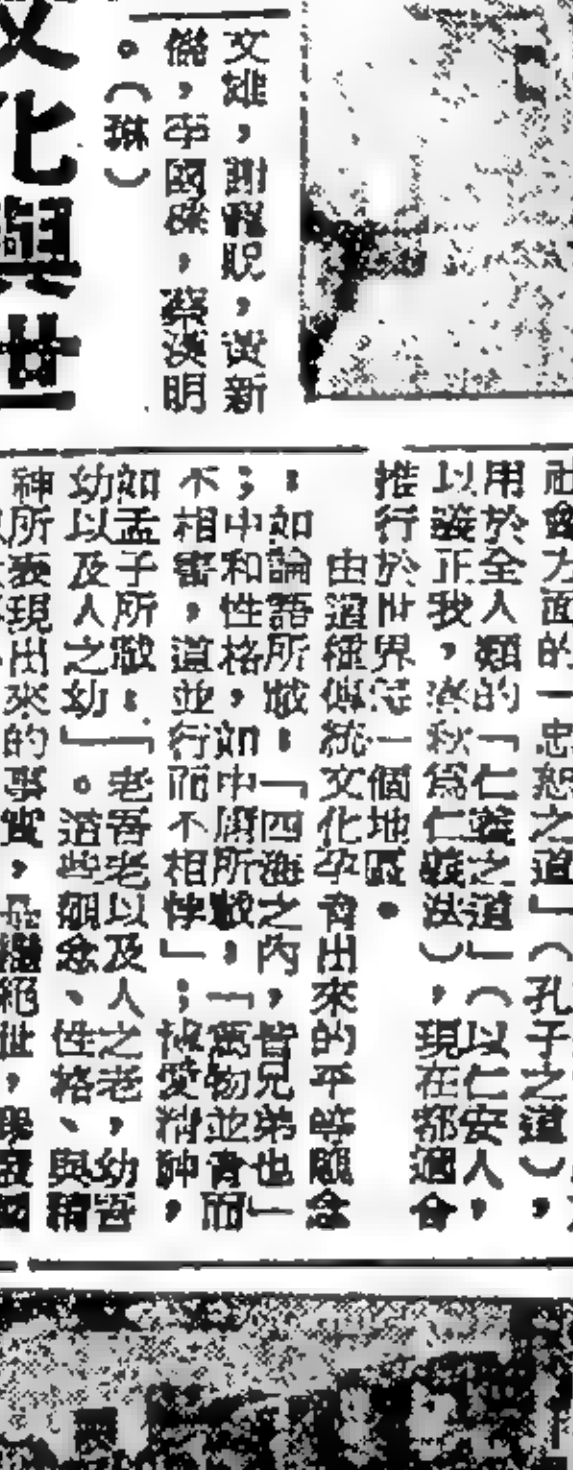 文雄，謝賜貺，黃新
傑，李國樑，蔡漢明
。（琳）
文化與世
社會方面的「忠恕之道」（孔子之道），
用於全人類的「仁義之道」（以仁安人，
以義正我，春秋為仁義法），現在都適合
推行於世界每一個地區。
由這種傳統文化孕育出來的平等觀念
：如論語所載：「四海之內，皆兄弟也」
；中和性格，如中庸所載，「萬物並育而
不相害，道並行而不相悖」；博愛精神，
如孟子所載：「老吾老以及人之老，幼吾
幼以及人之幼」。這些觀念、性格、與精
神所表現出來的事實，是繼絕世，舉廢國